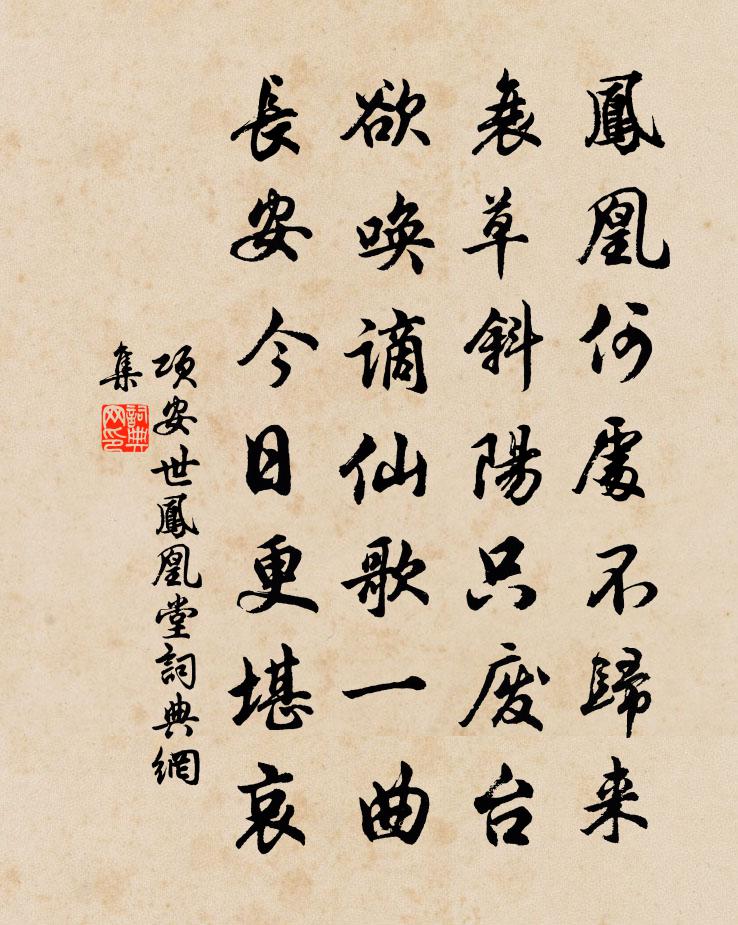 鳳凰何處不歸来
衰草斜陽只废台
欲喚謫仙歌一曲
長安今日更堪哀
項安世鳳凰堂詞典網
集
詞典网印